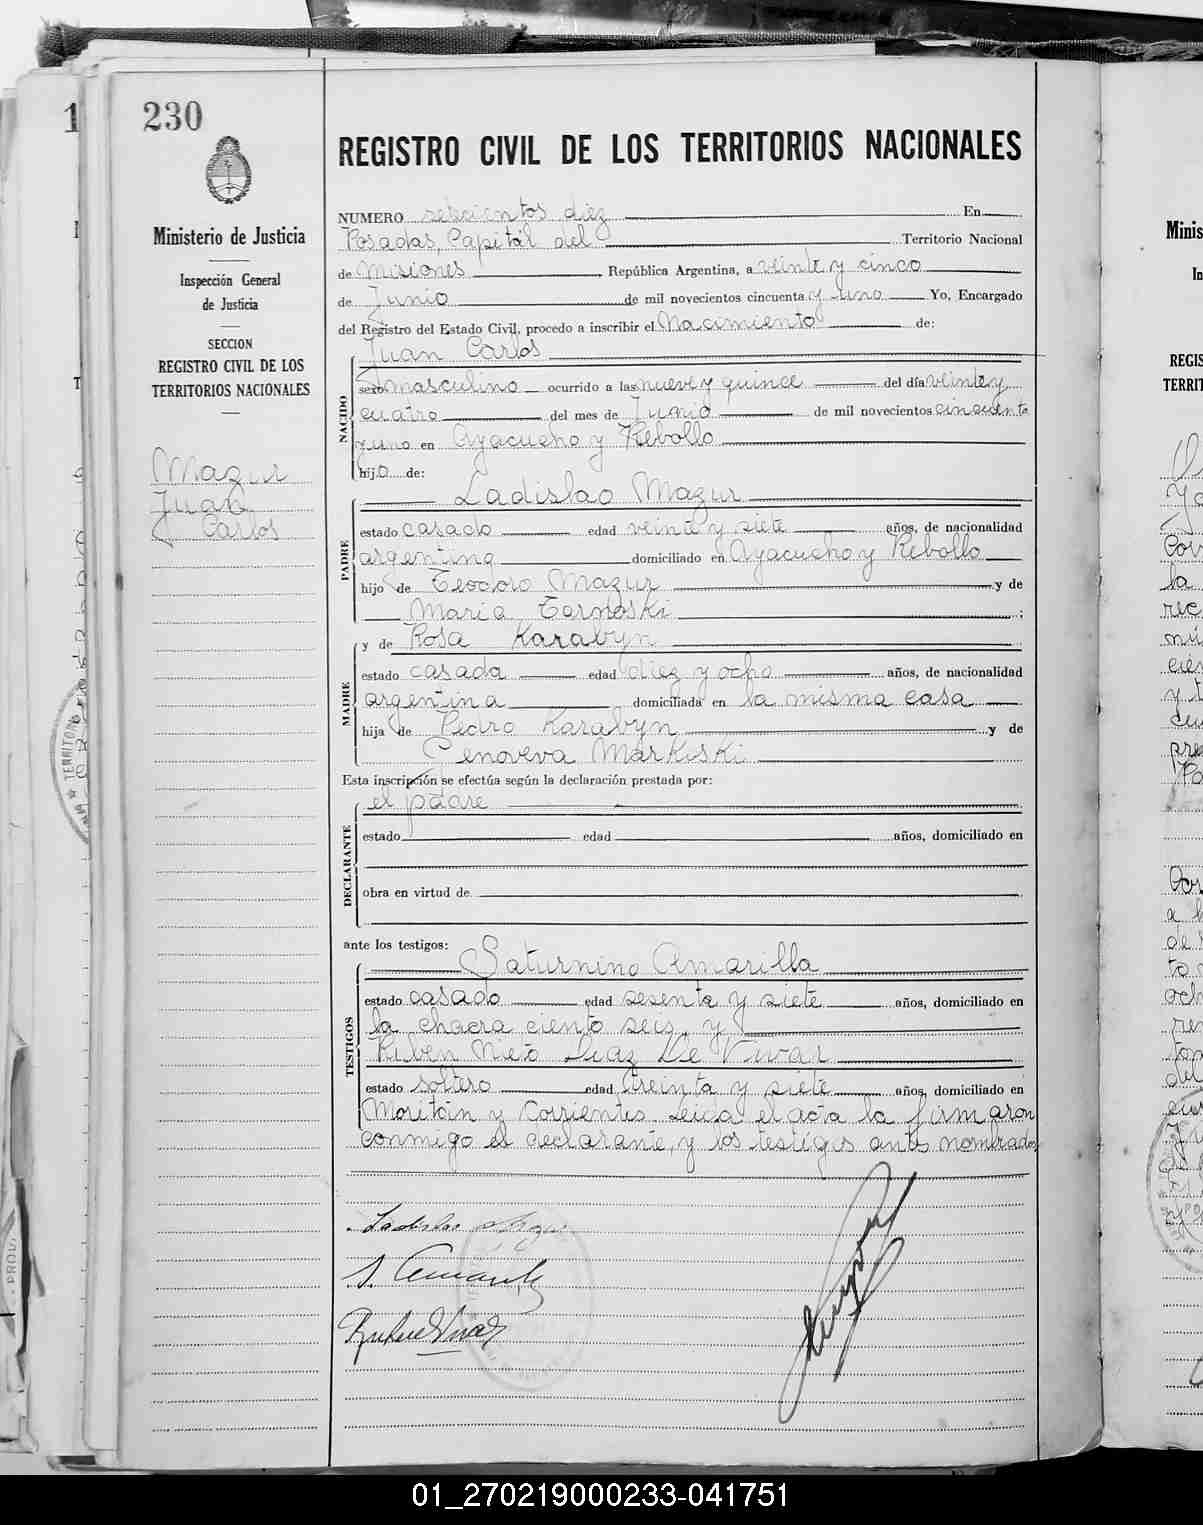 230
Ministerio de Justicia
Inspección General
de Justicia
SECCION
REGISTRO CIVIL DE LOS
TERRITORIOS NACIONALES
Mazur
Juan
Carlos
REGISTRO CIVIL DE LOS TERRITORIOS NACIONALES
NUMERO setecientos diez En
Posadas, Capital del Territorio Nacional
de Misiones República Argentina, a veinte y cinco
de Junio de mil novecientos cincuenta y uno Yo, Encargado
del Registro del Estado Civil, procedo a inscribir el Nacimiento de:
NACIDO
Juan Carlos
sexo masculino ocurrido a las nueve y quince del día veinte y
cuatro del mes de Junio de mil novecientos cincuenta
y uno en Ayacucho y Rebollo
hijo de:
PADRE
Ladislao Mazur
estado casado edad veinte y siete años, de nacionalidad
argentina domiciliado en Ayacucho y Rebollo
hijo de Teodoro Mazur y de
Maria Tarnoski ;
MADRE
y de Rosa Karabyn
estado casada edad diez y ocho años, de nacionalidad
argentina domiciliada en la misma casa
hija de Pedro Karabyn y de
Genoveva Markoski
Esta inscripción se efectúa según la declaración prestada por:
DECLARANTE
el padre
estado edad años, domiciliado en
obra en virtud de
ante los testigos:
TESTIGOS
Saturnino Amarilla
estado casado edad sesenta y siete años, domiciliado en
la chacra ciento seis, y
Ruben Nieto Diaz De Vivar
estado soltero edad treinta y siete años, domiciliado en
Moritán y Corrientes. Leida el acta la firmaron
conmigo el declarante, y los testigos antes nombrados
Ladislao Mazur
01_270219000233-041751